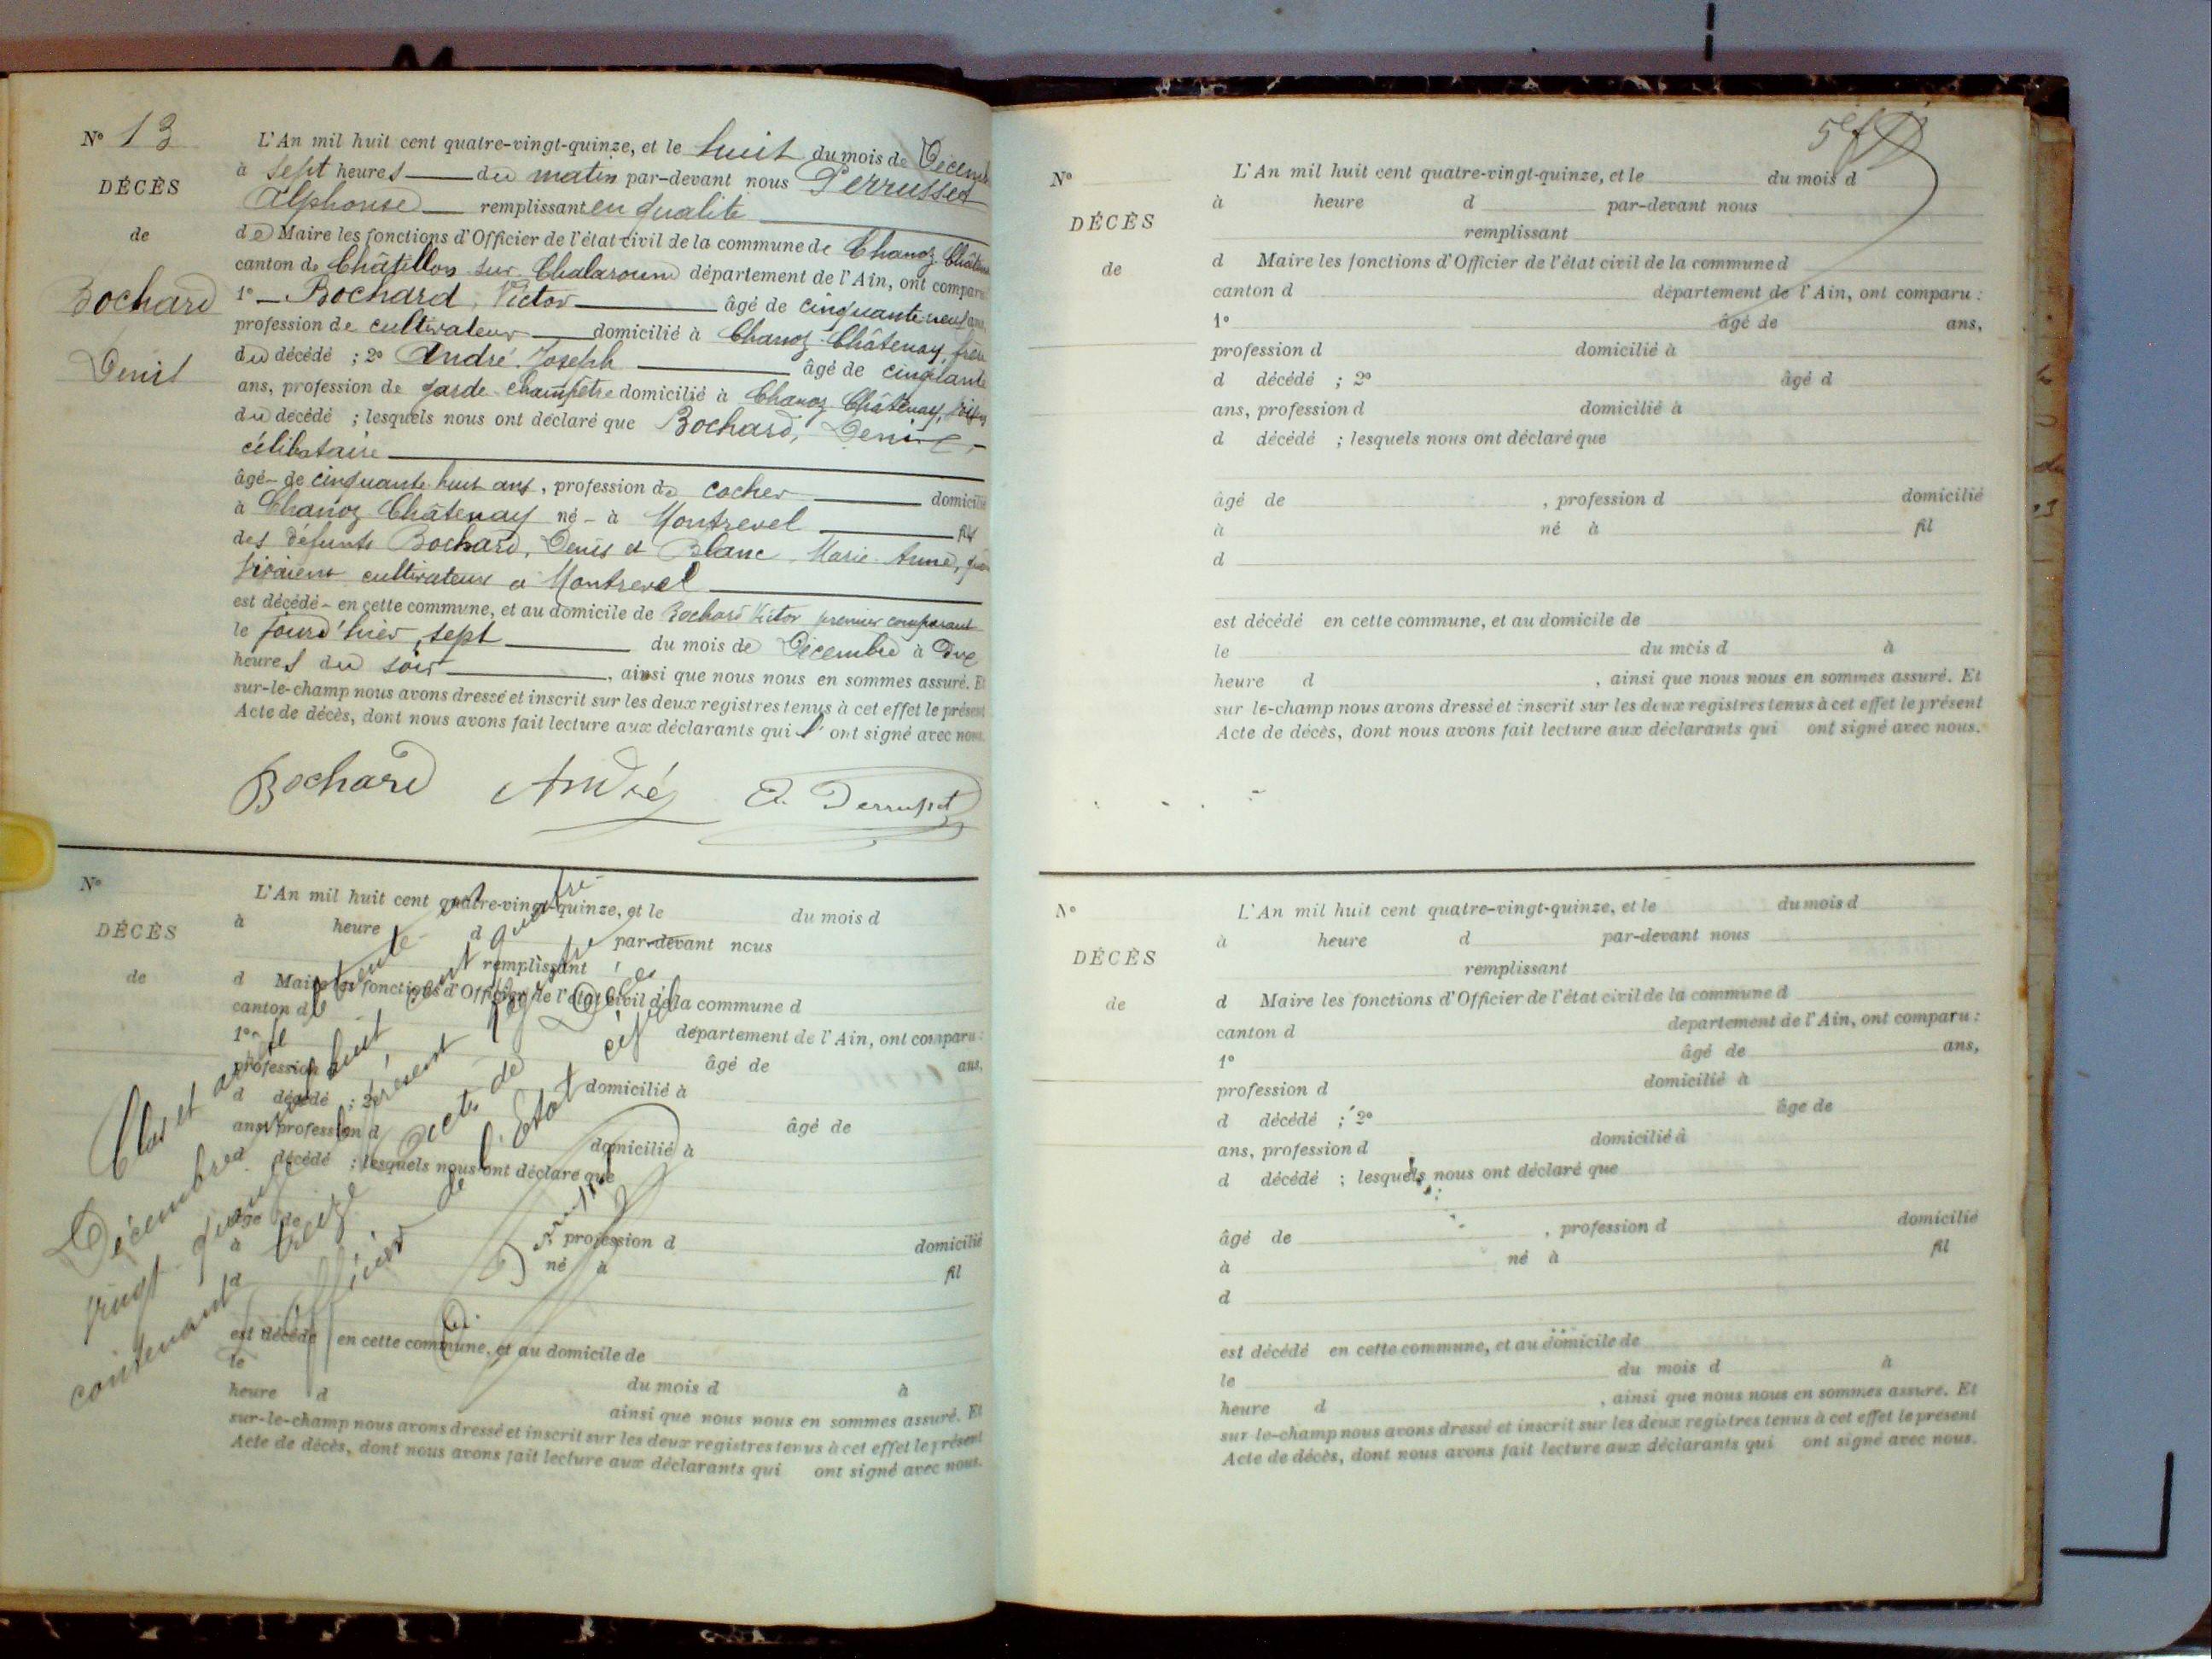 Nº 13
DÉCÈS
de
Bochard
Denis
L'An mil huit cent quatre-vingt-quinze, et le huit du mois de Décemb
à sept heures du matin par-devant nous Perrusset
Alphonse remplissant en qualité
de Maire les fonctions d'Officier de l'état civil de la commune de Chanoz Châten
canton de Châtillon sur Chalaronne département de l'Ain, ont comparu
1º Bochard, Victor âgé de cinquante neuf ans,
profession de cultivateur domicilié à Chanoz Châtenay, frère
du décédé ; 2º André Joseph âgé de cinquante
ans, profession de garde champêtre domicilié à Chanoz Châtenay, voisin
du décédé ; lesquels nous ont déclaré que Bochard, Denis,
célibataire
âgé de cinquante huit ans, profession de cocher domicilié
à Chanoz Châtenay né à Montrevel fils
des défunts Bochard, Denis et Blanc Marie Anne, qui
vivaient cultivateurs à Montrevel
est décédé en cette commune, et au domicile de Bochard Victor premier comparant
le jourd'hier, sept du mois de Décembre à Dix
heures du soir, ainsi que nous nous en sommes assuré. Et
sur-le-champ nous avons dressé et inscrit sur les deux registres tenus à cet effet le présent
Acte de décès, dont nous avons fait lecture aux déclarants qui l'ont signé avec nous.
Bochard André A. Perrusset
Nº
DÉCÈS
de
L'An mil huit cent quatre-vingt-quinze, et le du mois d
à heure d par-devant nous
remplissant
d Maire les fonctions d'Officier de l'état civil de la commune d
canton d département de l'Ain, ont comparu :
1º âgé de ans,
profession d domicilié à
d décédé ; 2º âgé de
ans, profession d domicilié à
d décédé ; lesquels nous ont déclaré que
âgé de , profession d domicilié
à né à fil
d
est décédé en cette commune, et au domicile de
le du mois d à
heure d ainsi que nous nous en sommes assuré. Et
sur-le-champ nous avons dressé et inscrit sur les deux registres tenus à cet effet le présent
Acte de décès, dont nous avons fait lecture aux déclarants qui ont signé avec nous.
Clos et arrêté le trente et un
Décembre mil huit cent quatre
vingt quinze le présent registre
contenant treize actes de Décès
L'Officier de l'Etat civil
A. Perrusset
5e f
Nº
DÉCÈS
de
L'An mil huit cent quatre-vingt-quinze, et le du mois d
à heure d par-devant nous
remplissant
d Maire les fonctions d'Officier de l'état civil de la commune d
canton d département de l'Ain, ont comparu :
1º âgé de ans,
profession d domicilié à
d décédé ; 2º âgé d
ans, profession d domicilié à
d décédé ; lesquels nous ont déclaré que
âgé de , profession d domicilié
à né à fil
d
est décédé en cette commune, et au domicile de
le du mois d à
heure d , ainsi que nous nous en sommes assuré. Et
sur le-champ nous avons dressé et inscrit sur les deux registres tenus à cet effet le présent
Acte de décès, dont nous avons fait lecture aux déclarants qui ont signé avec nous.
Nº
DÉCÈS
de
L'An mil huit cent quatre-vingt-quinze, et le du mois d
à heure d par-devant nous
remplissant
d Maire les fonctions d'Officier de l'état civil de la commune d
canton d departement de l'Ain, ont comparu :
1º âgé de ans,
profession d domicilié à
d décédé ; 2º âge de
ans, profession d domicilié à
d décédé ; lesquels nous ont déclaré que
âgé de , profession d domicilié
à né à fil
d
est décédé en cette commune, et au domicile de
le du mois d à
heure d , ainsi que nous nous en sommes assuré. Et
sur le-champ nous avons dressé et inscrit sur les deux registres tenus à cet effet le présent
Acte de décès, dont nous avons fait lecture aux déclarants qui ont signé avec nous.